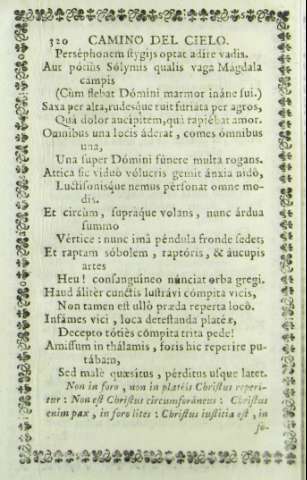 320 CAMINO DEL CIELO.
Perséphonem stygijs optat adire vadis.
Aut pótiùs Sólymis qualis vaga Mágdala
campis
(Cùm flebat Dómini marmor ináne sui.)
Saxa per alta, rudesque ruit furiata per agros,
Quà dolor aucipitem, quà rapiébat amor.
Omnibus una locis áderat, comes ómnibus
una,
Una super Dómini fúnere multa rogans.
Attica sic víduo vólucris gemit ánxia nido,
Luctisonisque nemus pérsonat omne mo-
dis.
Et circùm, supraque volans, nunc árdua
summo
Vértice: nunc imâ péndula fronde sedet;
Et raptam sóbolem, raptóris, & áucupis
artes
Heu! consanguíneo núnciat orba gregi.
Haud áliter cunctis lustrávi cómpita vicis,
Non tamen est ullo præda reperta locô.
Infámes vici, loca detestanda platéæ,
Decepto tóties cómpita trita pede!
Amissum in thálamis, foris hic reperire pu-
tábam,
Sed malè quæsitus, pérditus usque latet.
Non in foro, non in platéis Christus reperi-
tur: Non est Christus circumforáneus: Christus
enim pax, in foro lites: Christus iustitia est, in
fo-